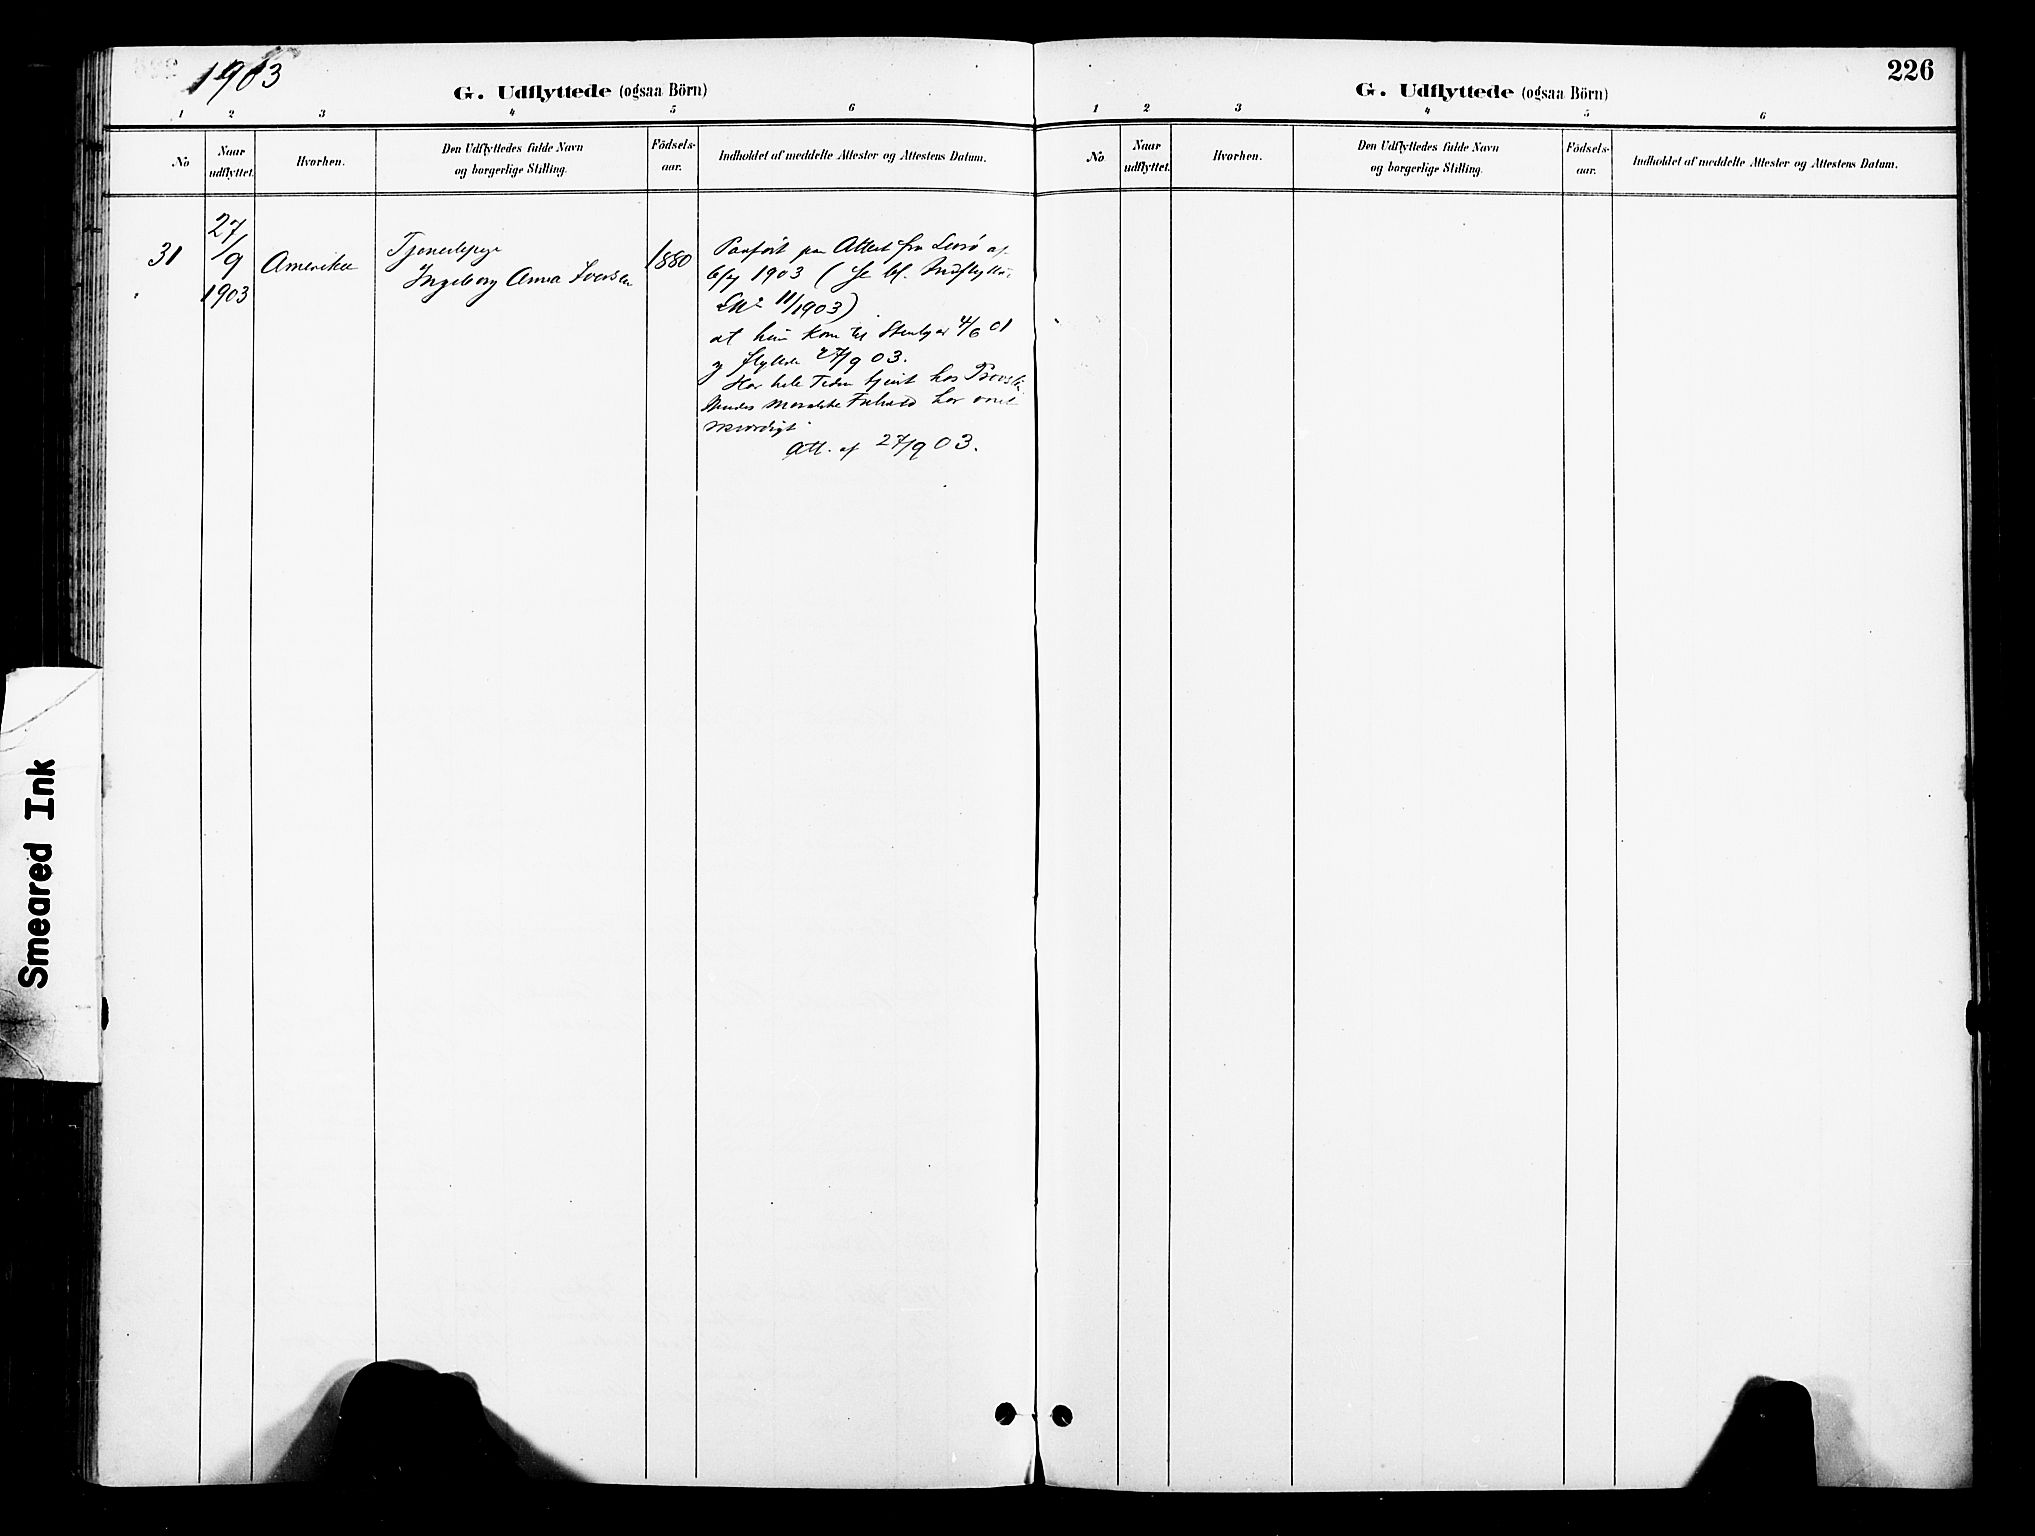 1903
226
G. Udflyttede (ogsaa Börn)
1 2 3 4 5 6
No
Naar udflyttet.
Hvorhen.
Den Udflyttedes fulde Navn og borgerlige Stilling.
Födsels-aar.
Indholdet af meddelte Attester og Attestens Datum.
31
27/9 1903
Amerika
Tjenestepige
Ingeborg Anna Iversen
1880
Paaført paa Attest fra af
1903 (se bl. Indflyttede
11/1903)
at hun kom til Stenkjær 4/6 01
og flyttede 27/9 03.
Har hele Tiden tjent hos
moralske Forhold har
Att. af 27/9 03.
G. Udflyttede (ogsaa Börn)
1 2 3 4 5 6
No
Naar udflyttet.
Hvorhen.
Den Udflyttedes fulde Navn og borgerlige Stilling.
Födsels-aar.
Indholdet af meddelte Attester og Attestens Datum.
Smeared Ink